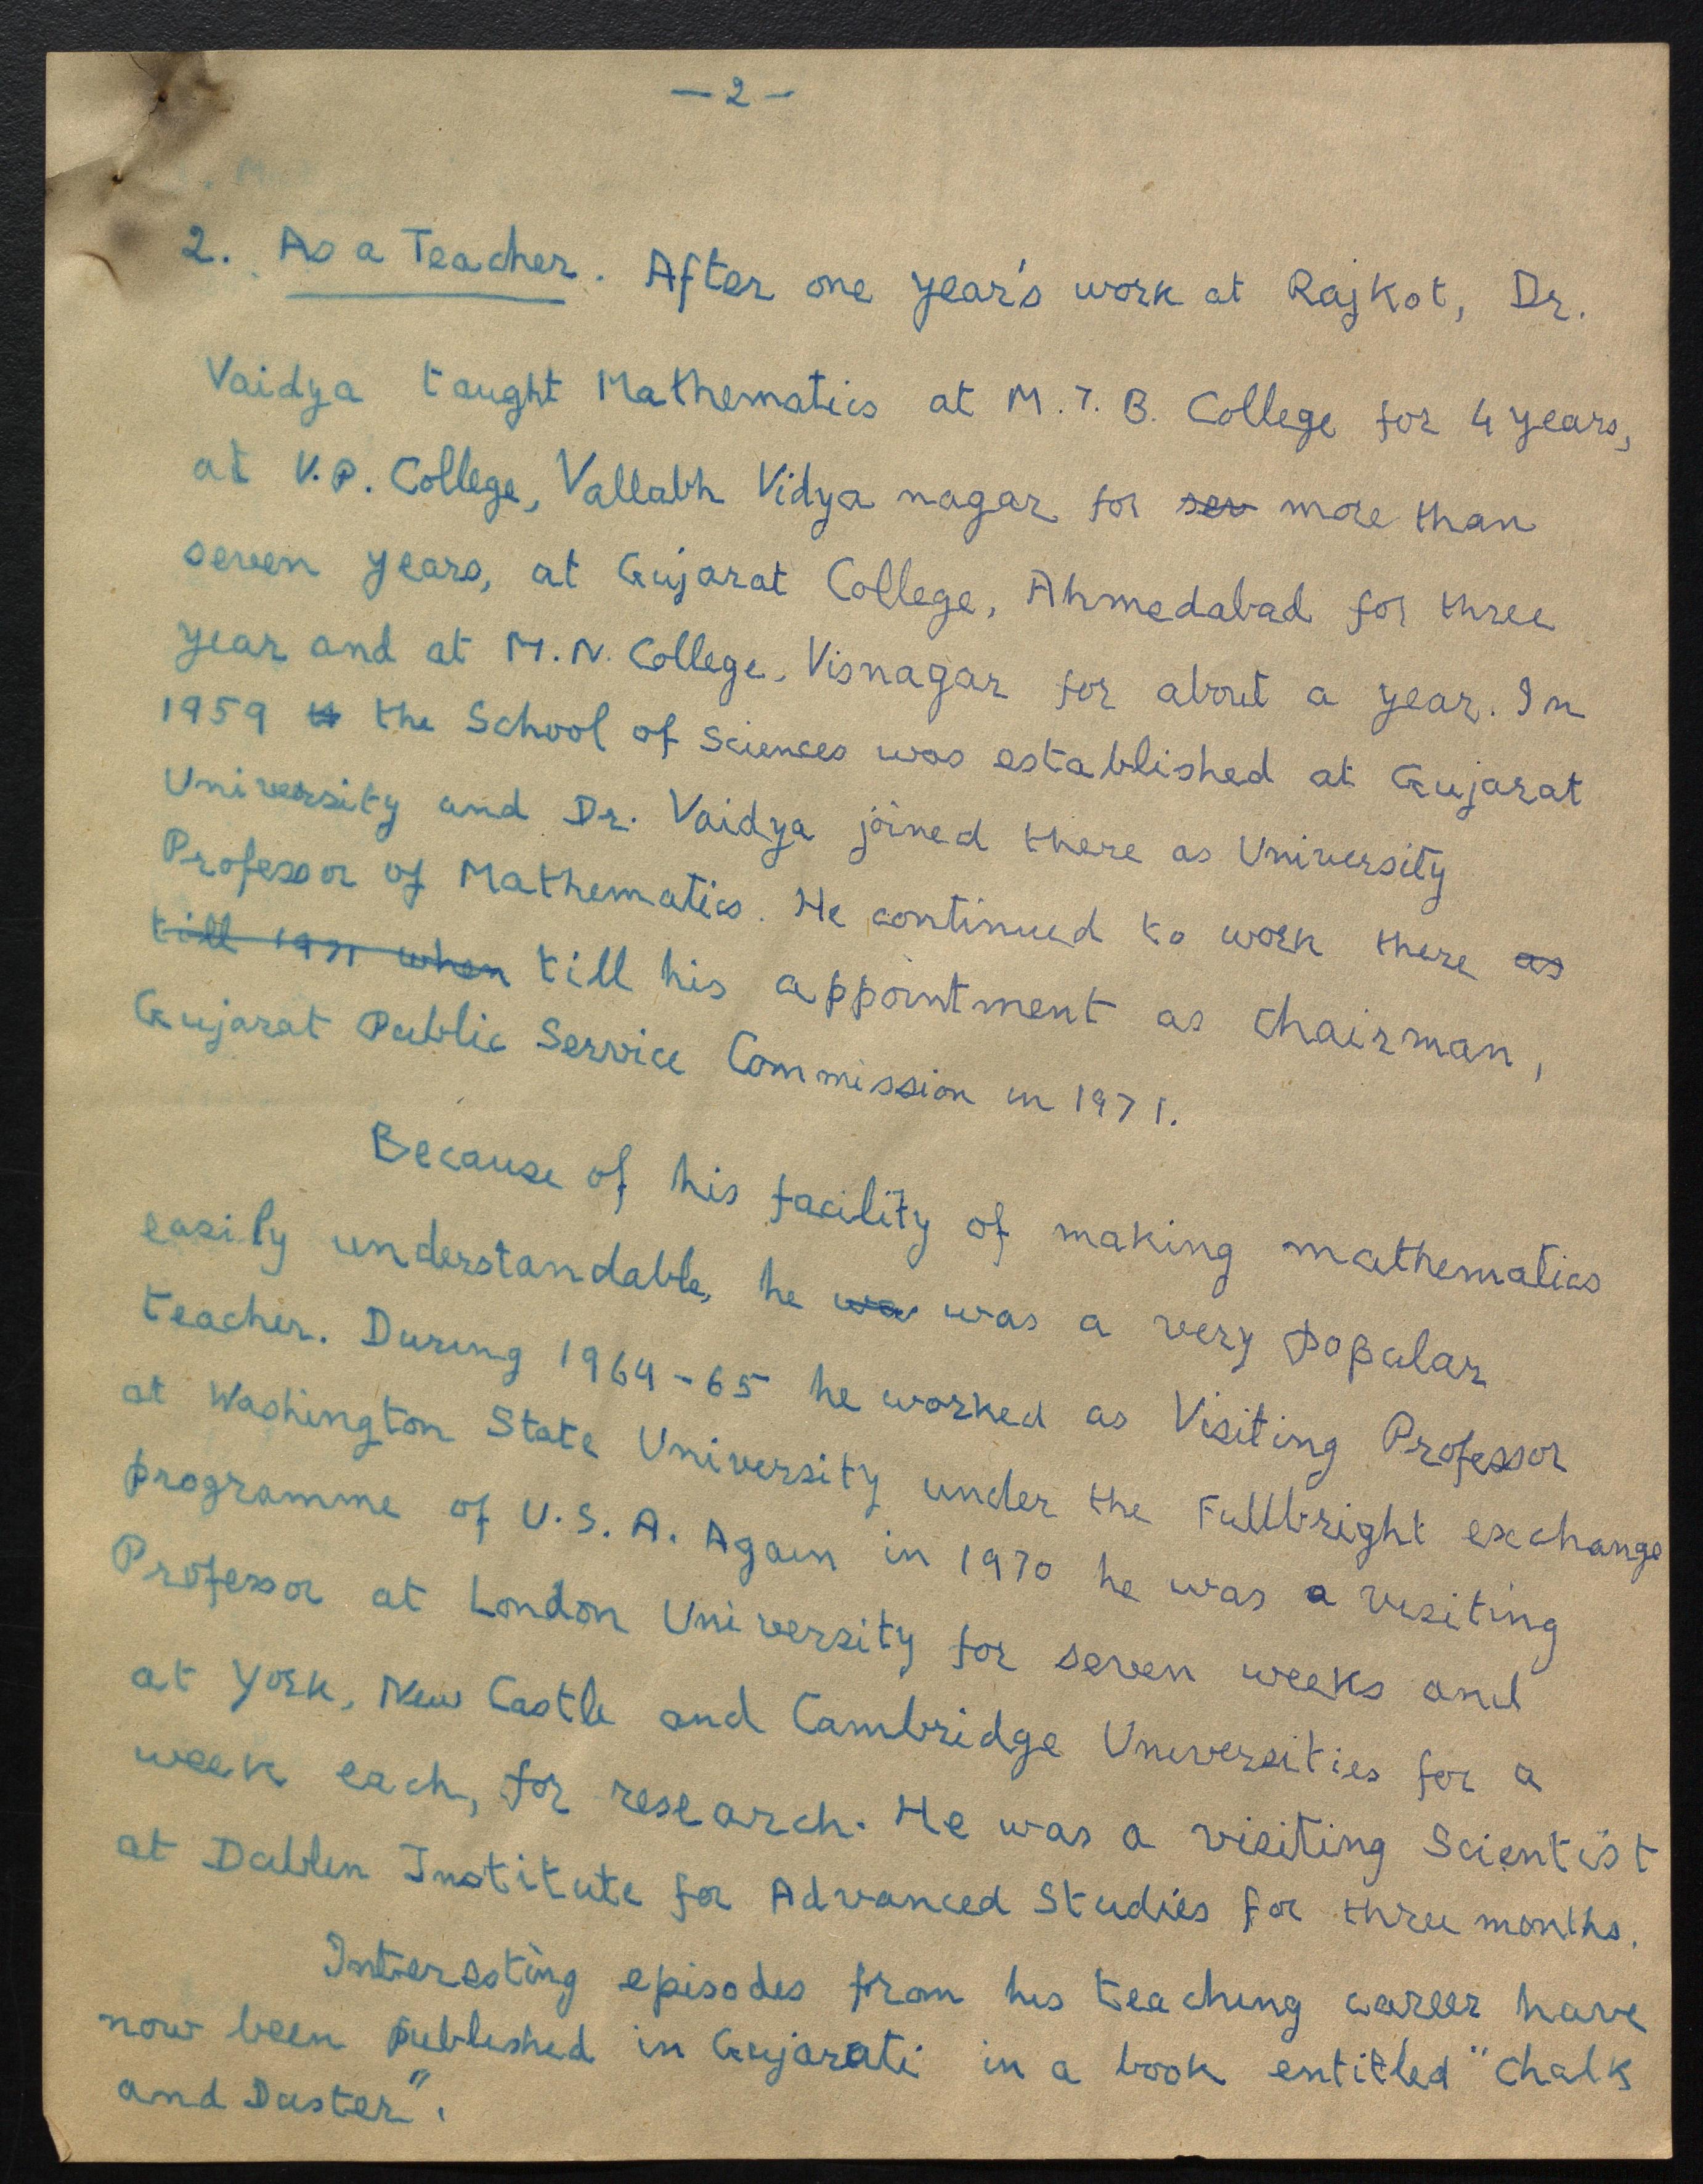 — 2 —
2. As a Teacher. After one year's work at Rajkot, Dr.
Vaidya taught Mathematics at M.T.B. College for 4 years,
at V.P. College, Vallabh Vidya nagar for sev more than
seven years, at Gujarat College, Ahmedabad for three
year and at M.N. College, Visnagar for about a year. In
1959 the School of Sciences was established at Gujarat
University and Dr. Vaidya joined there as University
Professor of Mathematics. He continued to work there as
till 1971 when till his appointment as Chairman,
Gujarat Public Service Commission in 1971.
Because of his facility of making mathematics
easily understandable, he wa was a very popular
teacher. During 1964-65 he worked as Visiting Professor
at Washington State University under the Fullbright exchange
programme of U.S.A. Again in 1970 he was a visiting
Professor at London University for seven weeks and
at York, New Castle and Cambridge Universities for a
week each, for research. He was a visiting Scientist
at Dublin Institute for Advanced Studies for three months.
Interesting episodes from his teaching career have
now been published in Gujarati in a book entitled "Chalk
and Duster".